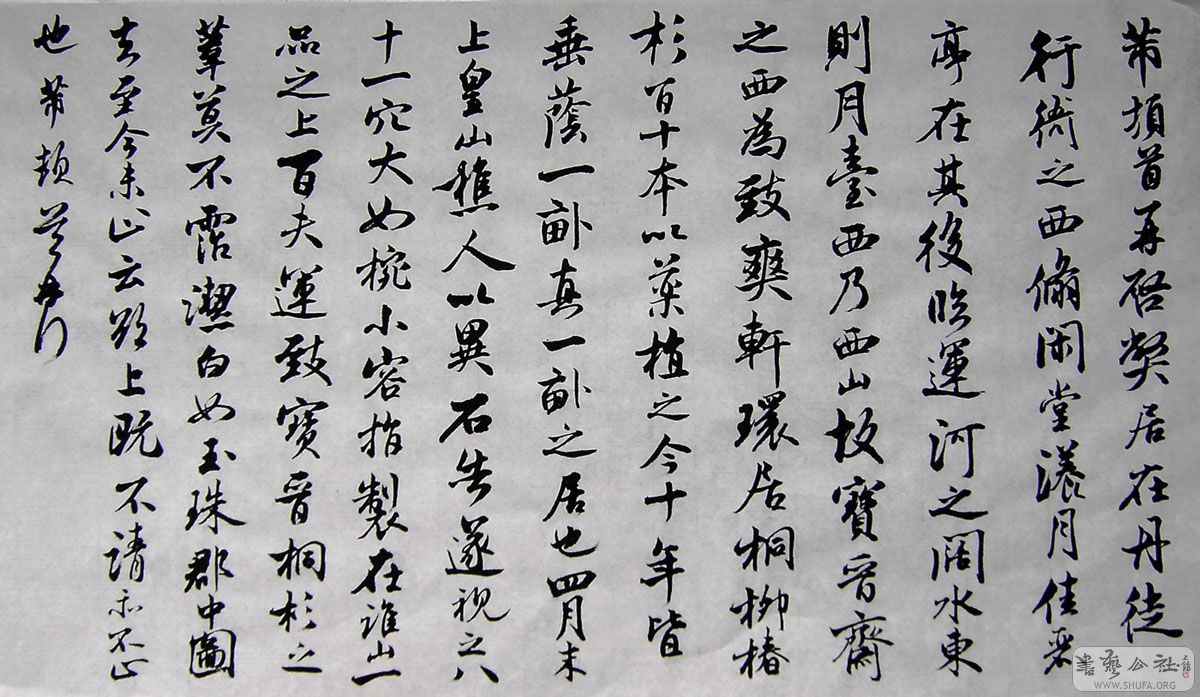 芾頓首再啓弊居在丹徒
行衙之西翛閑堂漾月佳麗
亭在其後臨運河之闊水東
則月臺西乃西山故寶晉齋
之西為致爽軒環居桐柳椿
杉百十本以藥植之今十年皆
垂蔭一畝真一畝之居也四月末
上皇山樵人以異石告遂視之八
十一穴大如椀小容指製在淮山一
品之上百夫運致寶晉桐杉之
葦莫不霑濕白如玉珠郡中圖
去至今未止云欲上既不請亦不止
也芾頓首
書藝公社
WWW.SHUFA.ORG